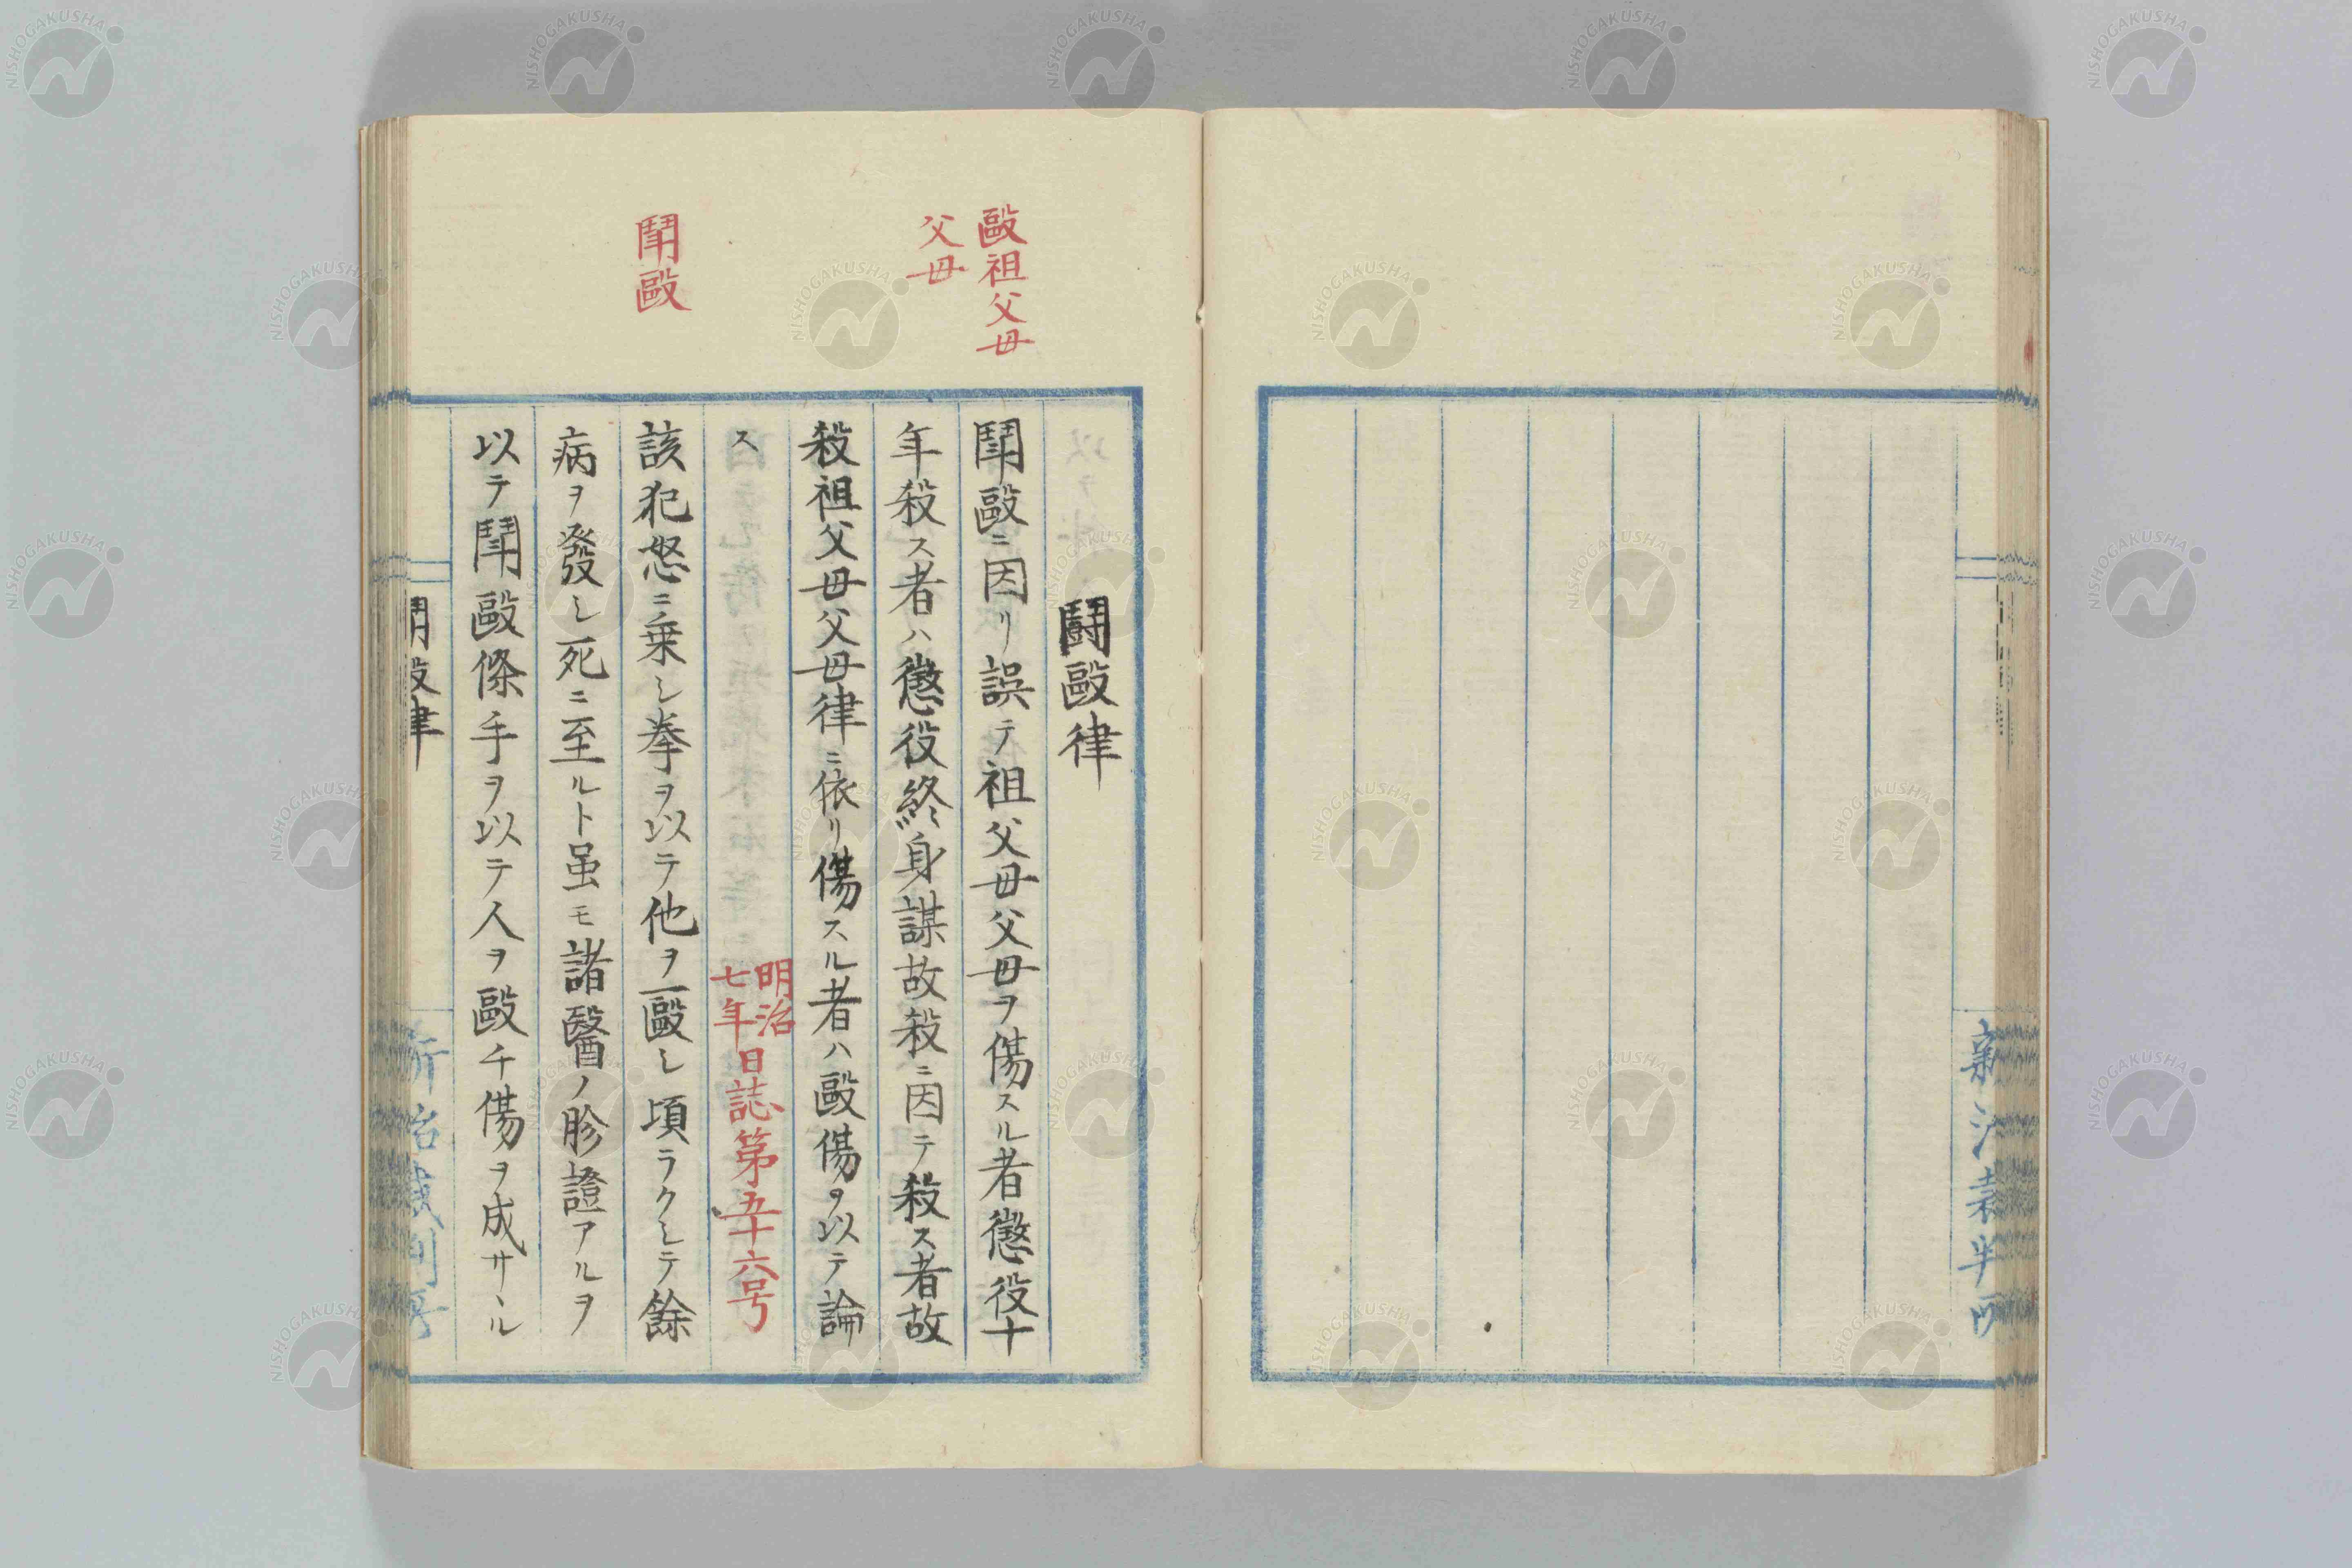 鬪毆律
毆祖父母
父母
鬪毆ニ因リ誤テ祖父母父母ヲ傷スル者懲役十
年殺ス者ハ懲役終身謀故殺ニ因テ殺ス者故
殺祖父母父母律ニ依リ傷スル者ハ毆傷ヲ以テ論
ス
明治
七年
日誌第五十六号
鬪毆
該犯怒ニ乗シ拳ヲ以テ他ヲ一毆シ頃ラクシテ餘
病ヲ發シ死ニ至ルト虽モ諸醫ノ胗證アルヲ
以テ鬪毆條手ヲ以テ人ヲ毆チ傷ヲ成サヽル
NISHOGAKUSHA